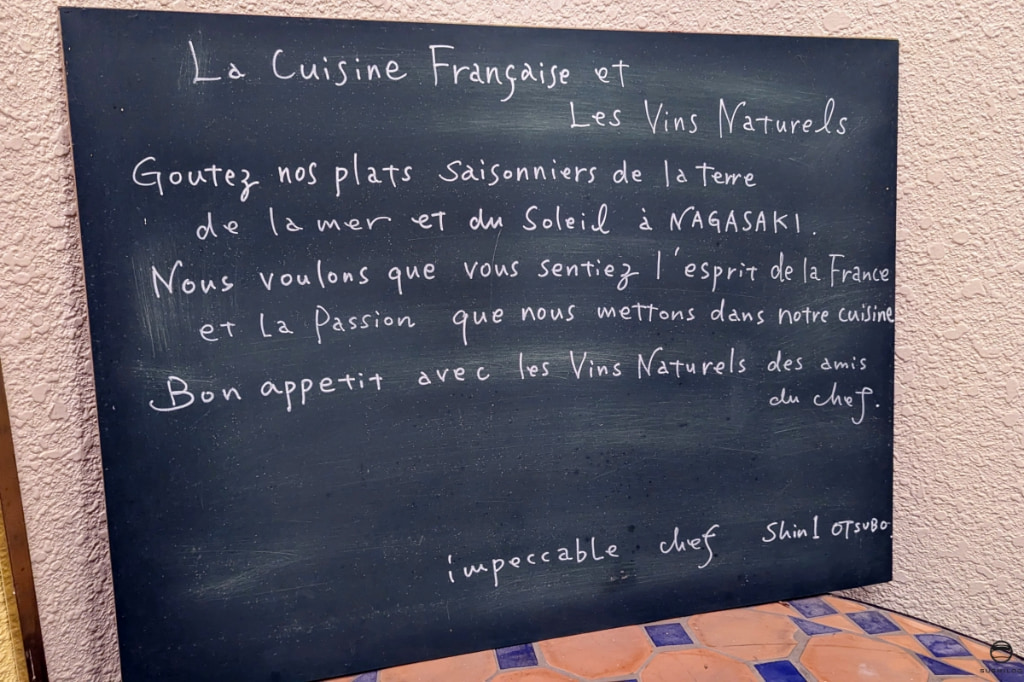 La Cuisine Française et
Les Vins Naturels
Goutez nos plats saisonniers de la terre
de la mer et du Soleil à NAGASAKI.
Nous voulons que vous sentiez l'esprit de la France
et La Passion que nous mettons dans notre cuisine
Bon appetit avec les Vins Naturels des amis
du chef.
impeccable chef Shin1 OTSUBO.